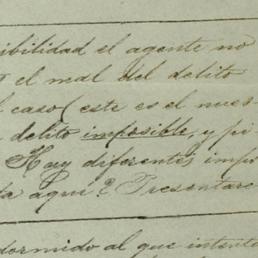 ibilidad el agente no
el mal del delito
caso (este es el nues-
delito imposible, y pi
Hay diferentes impo
ta aquí? Presentare
dormido al que intenta